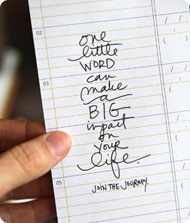 02
one
little
WORD
can
make
a
BIG
impact
on
your
life
03
JOIN THE JOURNEY.